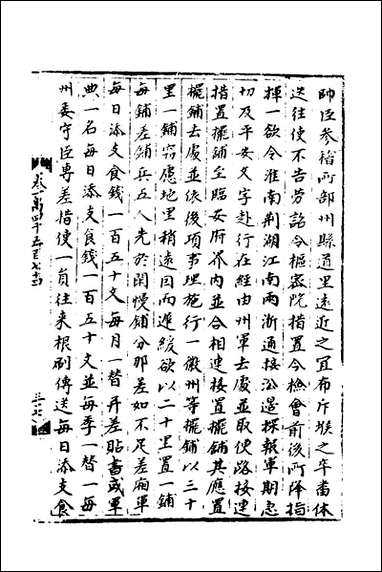 帥臣參稽所部州縣道里遠近之宜布斥堠之卒畨休
迭往使不告勞詔令樞密院措置今檢會前後所降指
揮一欲令淮南荆湖江南兩浙通接沿邊探報軍期急
切及平安文字赴行在經由州軍去處並取便路接連
措置擺鋪至臨安府界內並合相連接置擺鋪其應置
擺鋪去處並依後項事理施行一徽州等擺鋪以三十
里一鋪竊慮地里稍遠因而遲緩欲以二十里置一鋪
每鋪差鋪兵五人先於閑慢鋪分那差如不足差廂軍
每日添支食錢一百五十文每月一替并差貼書或軍
典一名每日添支食錢一百五十文並每季一替一每
州委守臣專差指使一員往來根刷傳送每日添支食
卷一萬四千五百七十五